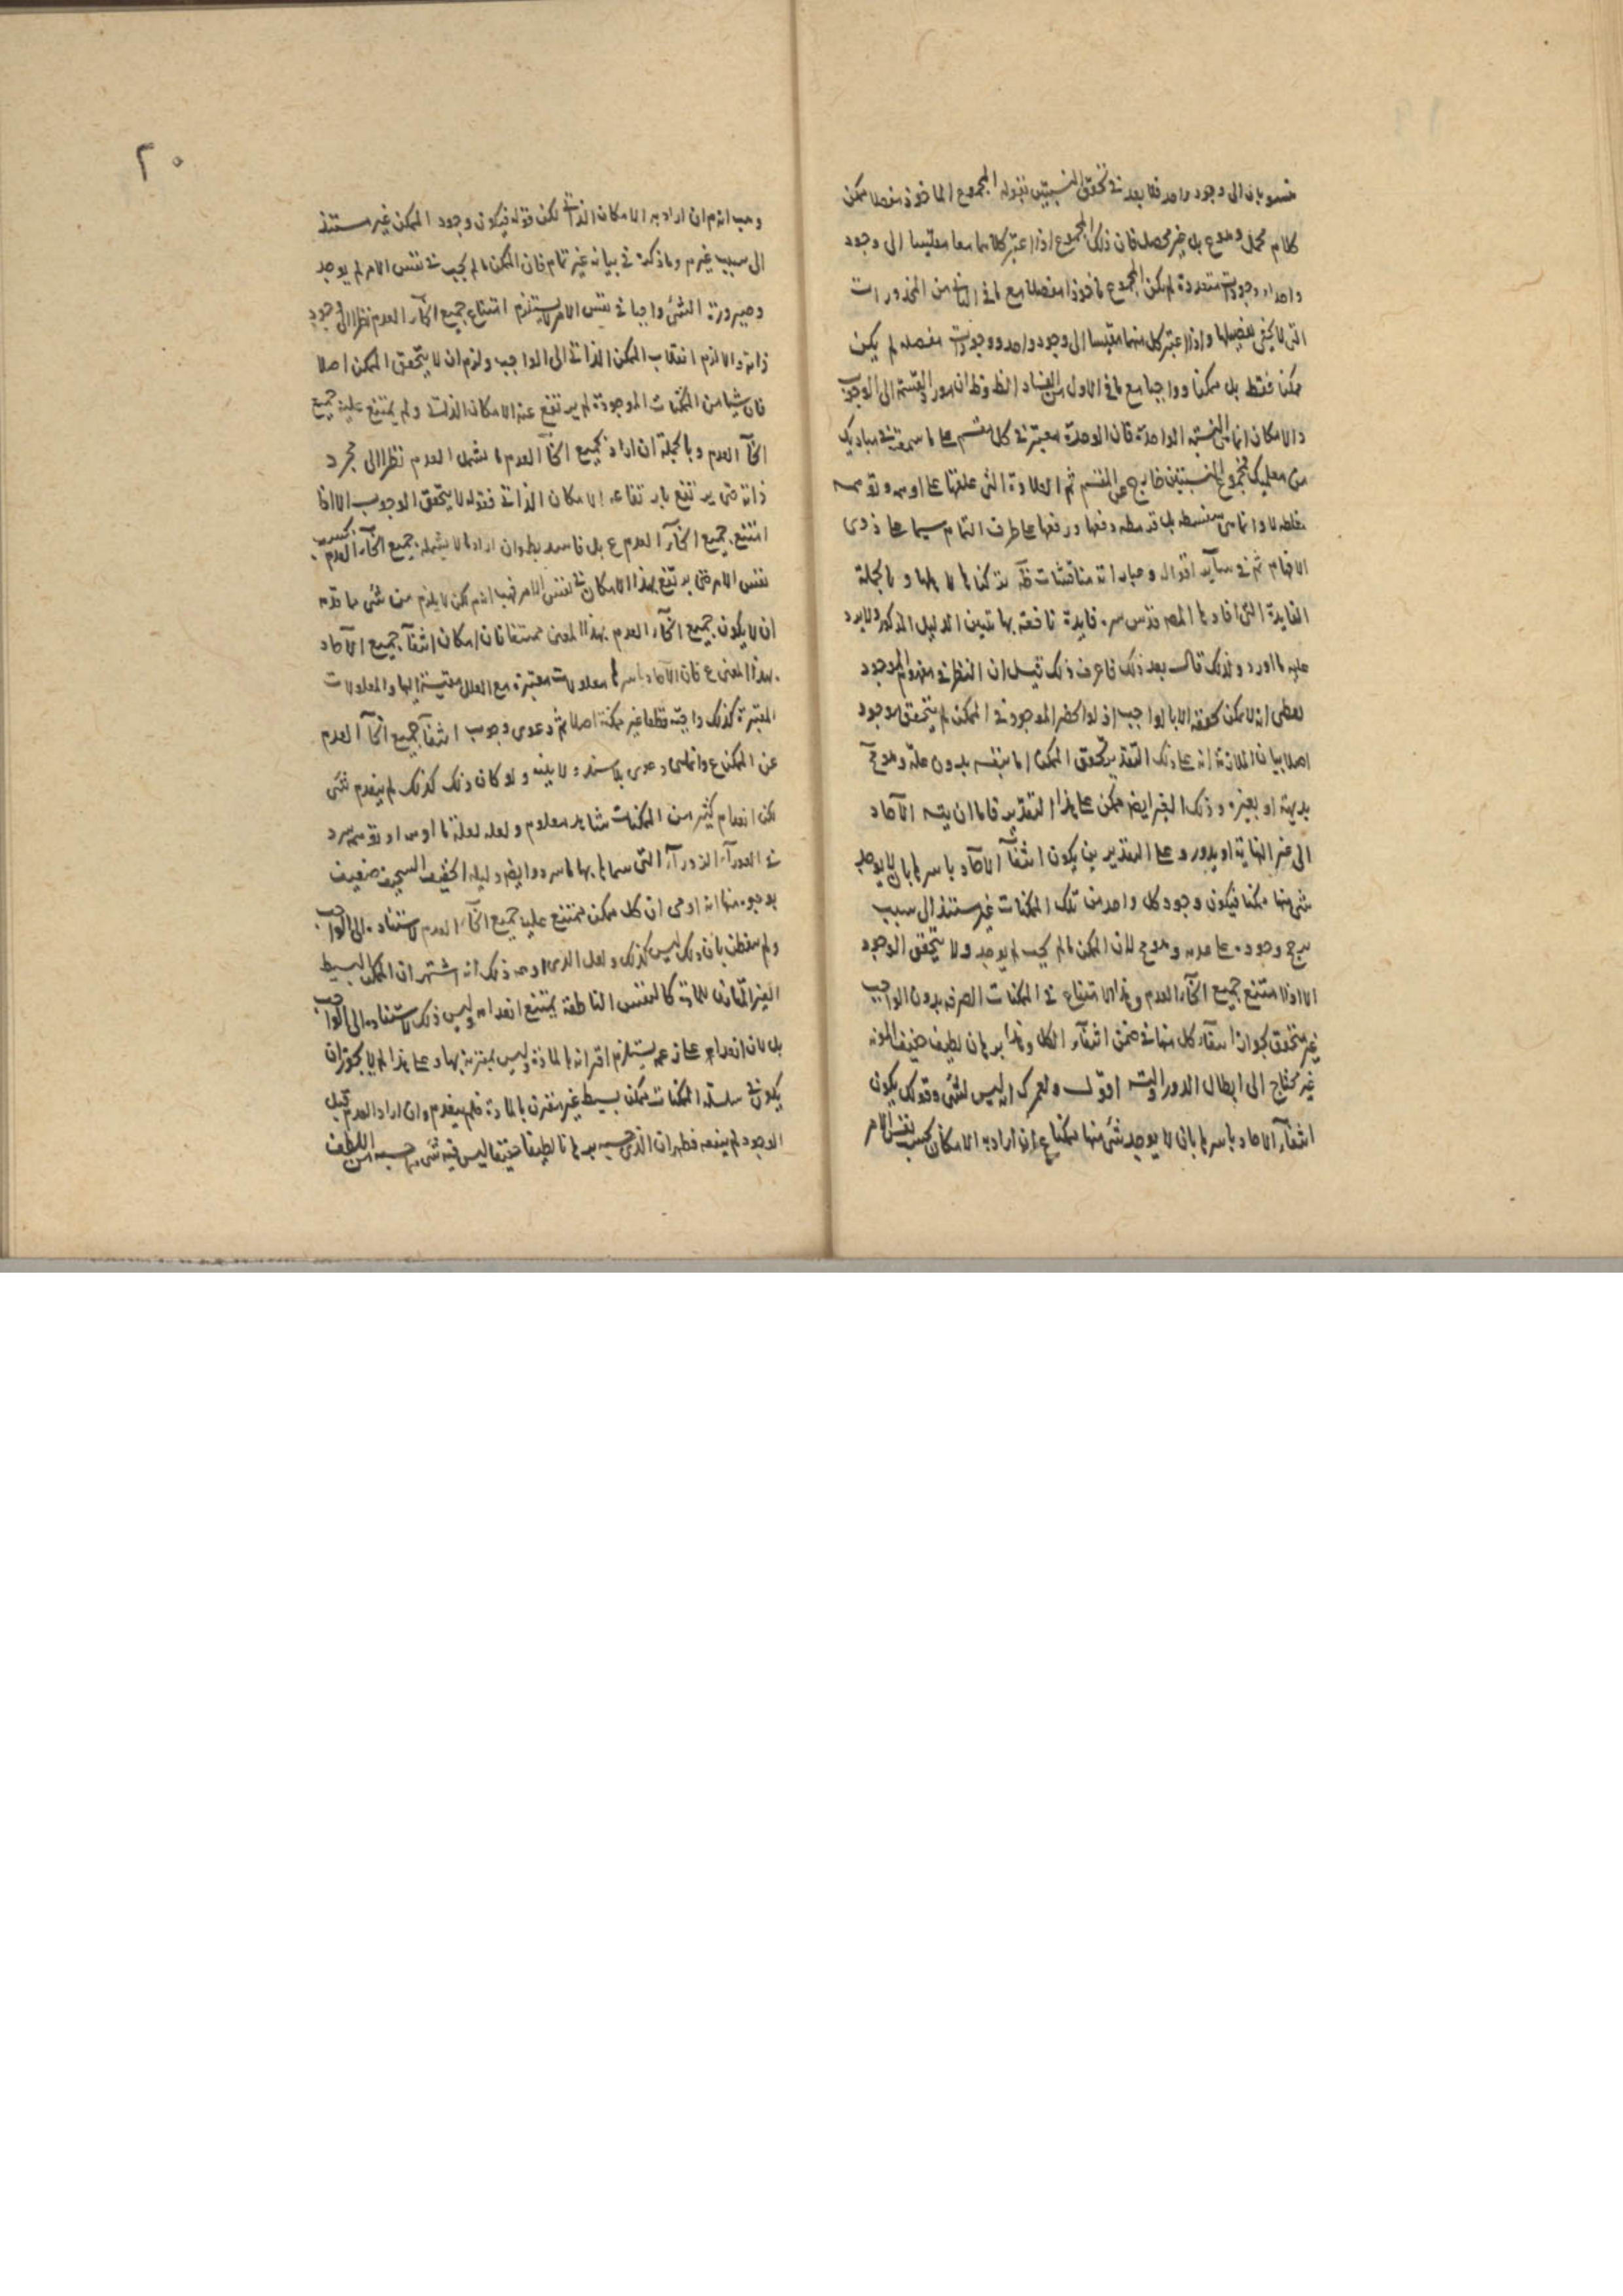 منسوبان الى وجود واحد فلا بعد في تحقق النسبتين فقوله المجموع الماخوذ مفصلا ممكن
كلام مخيل بل غير محصل فان ذلك المجموع اذا اعتبر كلاهما معا مقيسا الى وجود
واحد او وجودات متعددة لم يكن المجموع ماخوذا مفصلا مع ما في الثاني من المحذورات
التي لا يخفى تفصيلها واذا اعتبر كل منهما مقيسا الى وجود واحد ووجودات مفصلة لم يكن
ممكنا فقط بل ممكنا وواجبا مع ما في الاول من الفساد الظ فظ ان مورد القسمة الى الوجوب
والامكان انما هي النسبة الواحدة فان الوحدة معتبرة في كل مقسم على ما سمعته في مباديك
من معلميك فمجموع النسبتين خارج عن المقسم ثم العلاوة التي علقها على
مغلطة لا بل قد دفعها ورفعها على طرف الثمام سيما على ذوى
الافهام ثم في ساير اقواله وعباراته مناقشات ظه تركناها وبالجملة
الفايدة التي افادها المصه قدس سره فايدة نافعة بها يتبين الدليل المذكور ولا يرد
عليه ما اورد ولذلك قال بعد ذلك فاعرف ذلك قيل ان النظر في مفهوم الموجود
يعطى انه لا يمكن تحققه الا بالواجب اذ لو انحصر الموجود في الممكن لم يتحقق موجود
اصلا بيان الملازمة انه على ذلك التقدير تحقق الممكن اما بنفسه بدون علة وهو مح
بديهة او بغيره وذلك الغير ايضا ممكن على هذا التقدير فاما ان يتسه الآحاد
الى غير النهاية او يدور وعلى التقديرين يكون انتفآء الآحاد باسرها بان لا يوجد
شئ منها ممكنا فيكون وجود كل واحد من تلك الممكنات غير مستند الى سبب
يرجح وجوده على عدمه وهو مح لان الممكن ما لم يجب لم يوجد ولا يتحقق الوجود
الا اذا امتنع جميع انحآء العدم وهذا الامتناع في الممكنات الصرفه بدون الواجب
غير متحقق لجواز انتفآء كل منها في ضمن انتفآء الكل وهذا برهان لطيف خفيف المؤنه
غير محتاج الى ابطال الدور والتسه اقول ولعمرك انه ليس لشئ وقولك يكون
انتفآء الآحاد باسرها بان لا يوجد شئ منها ممكنا ع ان اراد به الامكان بحسب نفس الامر
٢٠
وهب انه م ان اراد به الامكان الذاتي لكن قوله فيكون وجود الممكن غير مستند
الى سبب غير م وما ذكره في بيانه غير تمام فان الممكن ما لم يجب في نفس الامر لم يوجد
وصيرورة الشئ واجبا في نفس الامر لا يستلزم امتناع جميع انحآء العدم نظرا الى وجود
ذاته والا لزم انقلاب الممكن الذاتي الى الواجب ولزم ان لا يتحقق الممكن اصلا
فان شيا من الممكنات الموجودة لم يرتفع عنه الامكان الذاتي ولم يمتنع عليه جميع
انحآء العدم وبالجملة ان اراد بجميع انحآء العدم ما يشمل العدم نظرا الى مجرد
ذاته حتى يرتفع بارتفاعه الامكان الذاتي فقوله لا يتحقق الوجوب الا اذا
امتنع جميع انحآء العدم ع بل فاسد بط وان اراد ما لا يشمله جميع انحآء العدم بحسب
نفس الامر حتى يرتفع بهذا الامكان في نفس الامر فهب انه م لكن لا يلزم من شئ ما قدمه
ان لا يكون جميع انحآء العدم بهذا المعنى ممتنعا فان امكان انتفآء جميع الآحاد
بهذا المعنى ع فان الآحاد باسرها معلولات معتبرة مع العلل مقيسة اليها والمعلولات
المعتبرة كذلك واجبة قطعا غير ممكنة اصلا ثم دعوى وجوب انتفآء جميع انحآء العدم
عن الممكن ع وانما هى دعوى بلا سند ولا بينه ولو كان ذلك كذلك لم ينعدم شئ
لكن انعدام كثير من الممكنات مشاهد معلوم ولعله لعلة ما
في العورآء الزورآء التي سماها بها وايضا دليله الخفيف السخيف ضعيف
بوجوه منها انه ادعى ان كل ممكن يمتنع عليه جميع انحآء العدم لاستناده الى الواجب
ولم يتفطن بان ذلك ليس كذلك ولعل الذي اوهمه ذلك انه اشتهر ان الممكن البسيط
الغير المقارن للمادة كالنفس الناطقة يمتنع انعدامه وليس ذلك لاستناده الى الواجب
بل لان انعدامه على زعمه يستلزم اقترانه بالمادة وليس بمقترنه بها وعلى هذا لم لا يجوز ان
يكون في سلسلة الممكنات ممكن بسيط غير مقترن بالمادة فلم ينعدم وان اراد العدم قبل
الوجود لم ينفعه فظهر ان الذي حسبه برهانا لطيفا خفيفا ليس فيه شئ مما حسبه من اللطف